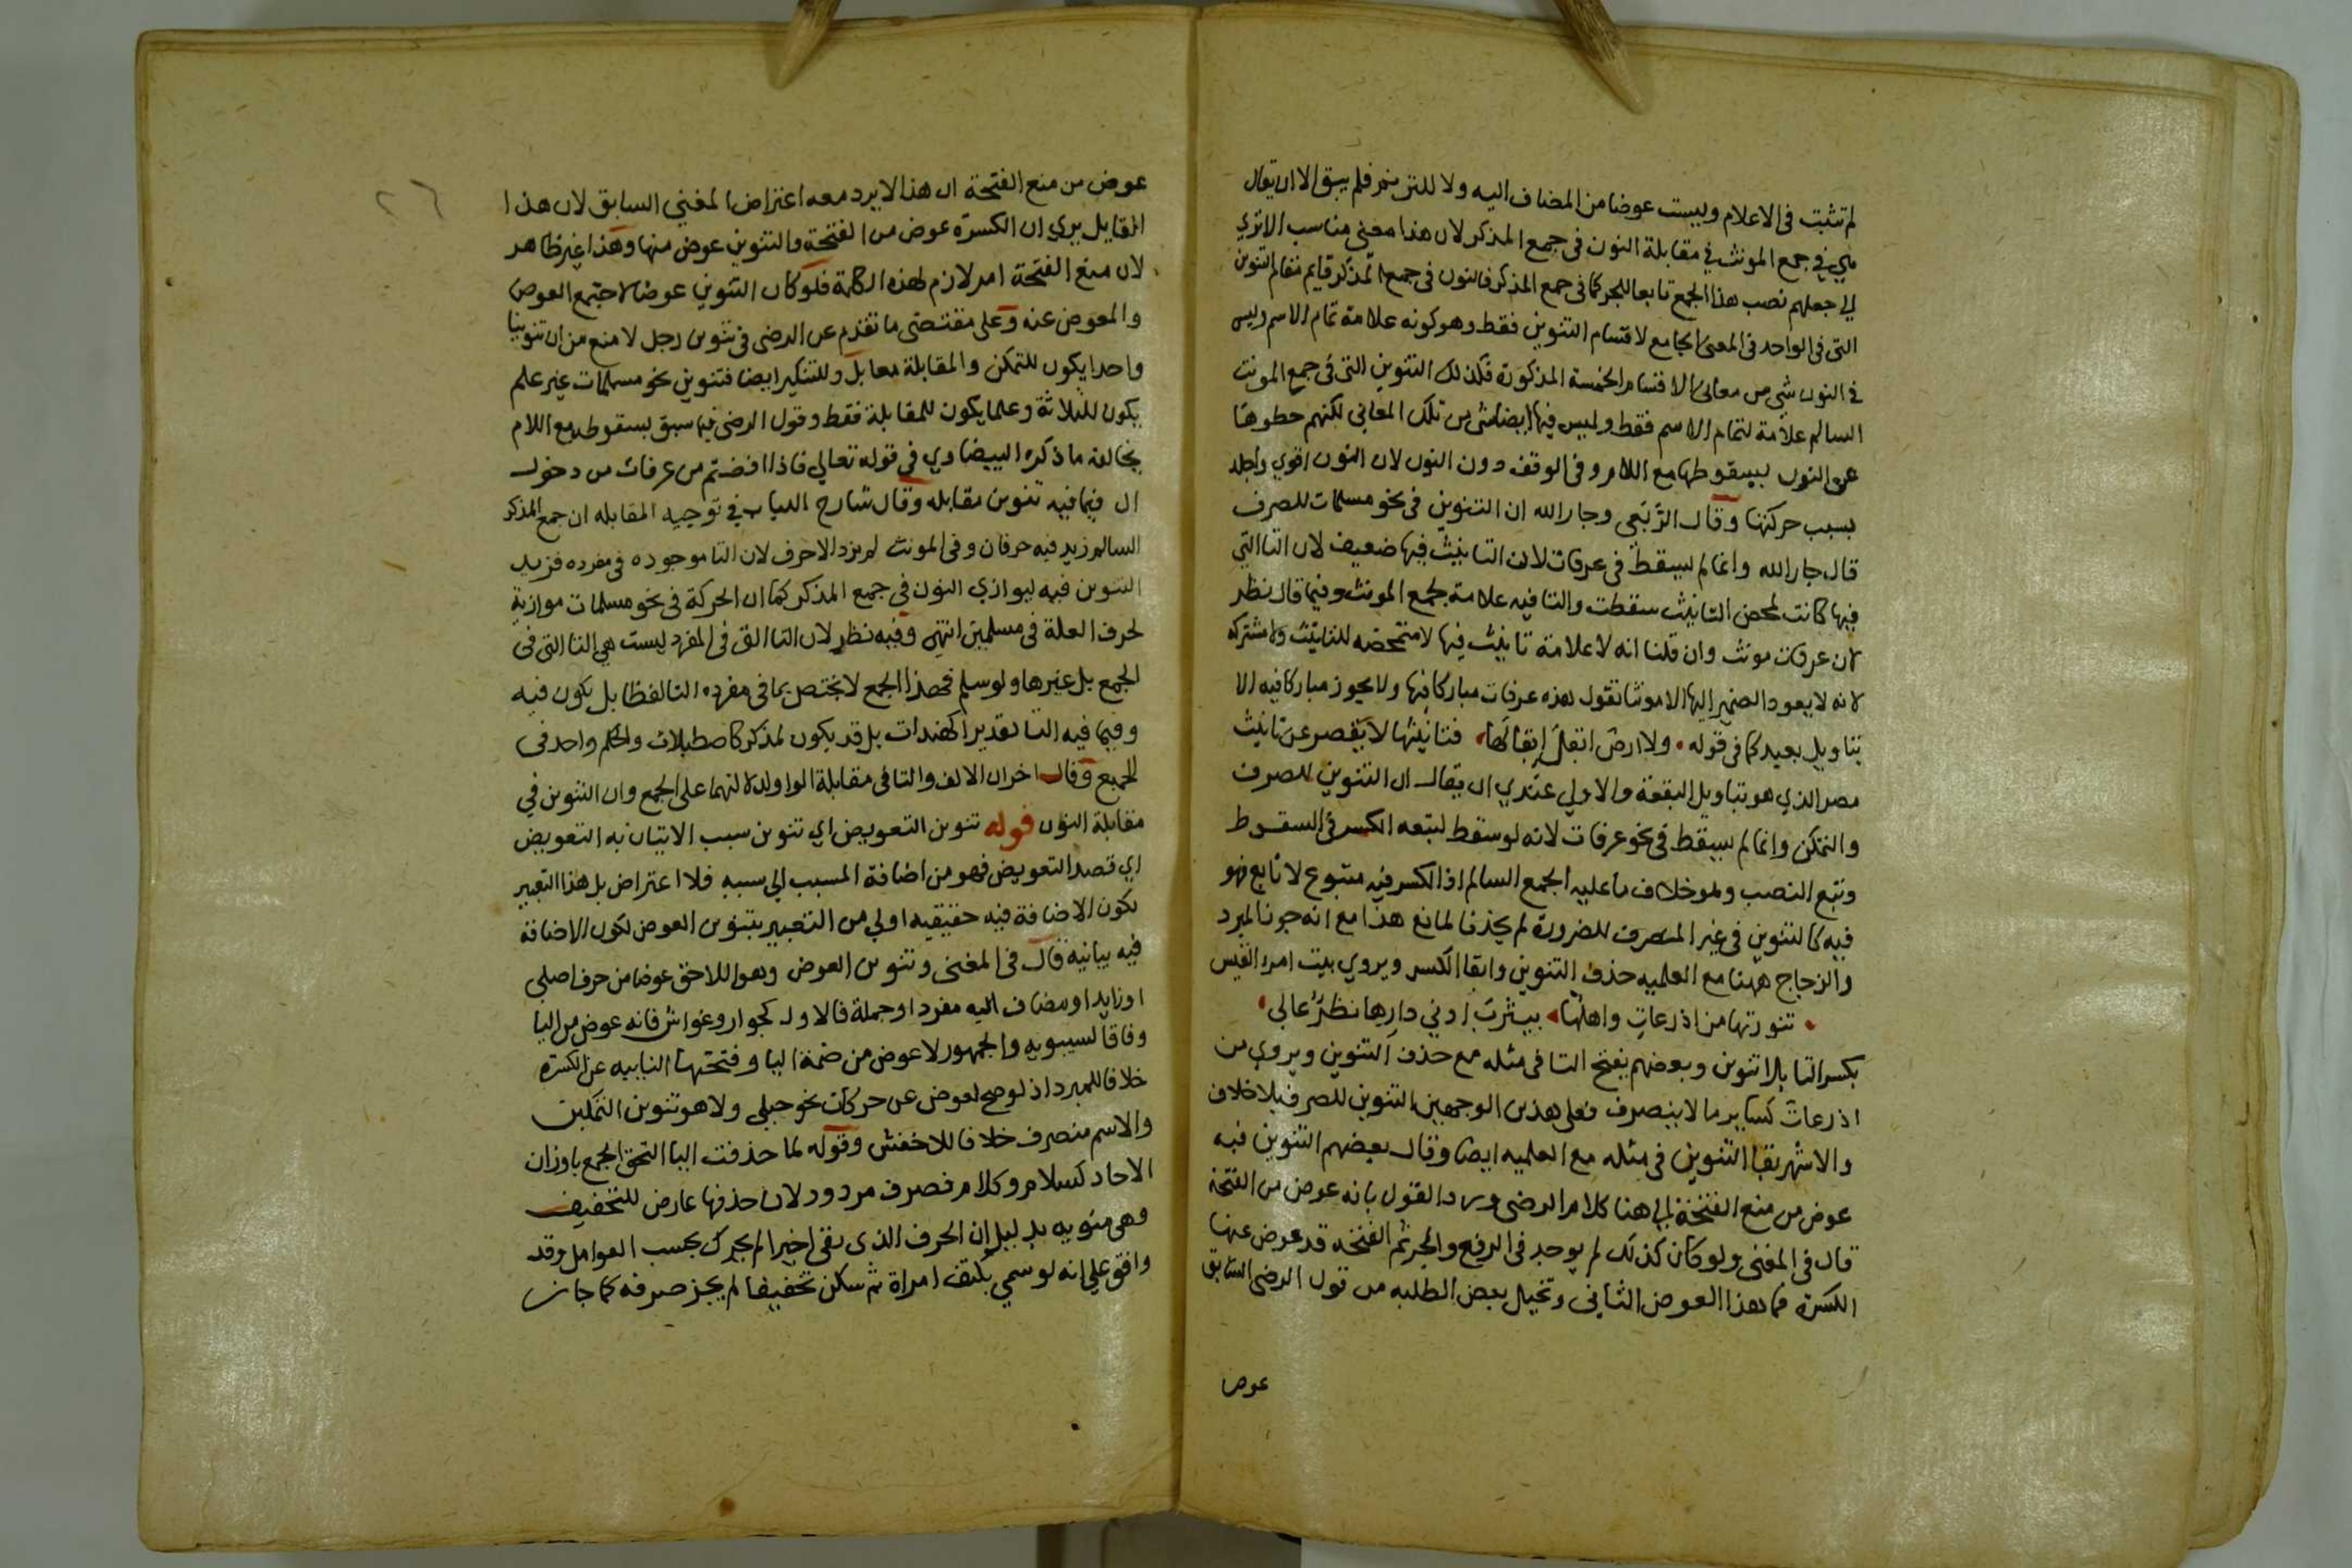 لم تثبت فى الاعلام وليست عوضا من المضاف اليه ولا للترنم فلم يبق الا ان يقال
هي في جمع المونث في مقابلة النون فى جمع المذكر لان هذا معنى مناسب الا تري
الي جعلهم نصب هذا الجمع تابعا للجر كما فى جمع المذكر فالنون فى جمع المذكر قايم مقام التنوين
التى فى الواحد فى المعنى الجامع لاقسام التنوين فقط وهو كونه علامة تمام الاسم وليس
في النون شى من معانى الاقسام الخمسة المذكورة فكذلك التنوين التى في جمع المونث
السالم علامة لتمام الاسم فقط وليس فيها ايضا شى من تلك المعاني لكنهم حطوها
عن النون بسقوطها مع اللام وفى الوقف دون النون لان النون اقوي واجلد
بسبب حركتها وقال الرَّبَعي وجار الله ان التنوين فى نحو مسلمات للصرف
قال جار الله وانما لم يسقط فى عرفات لان التانيث فيها ضعيف لان التا التي
فيها كانت لمحض التانيث سقطت والتا فيه علامة لجمع المونث وفيما قال نظر
لان عرفات مونث وان قلنا انه لا علامة تانيث فيها لا متمحضه للتانيث ولا مشتركه
لانه لا يعود الضمير اليها الا مونثا تقول هذه عرفات مباركا فيها ولا يجوز مباركا فيه الا
بتاويل بعيد كما فى قوله • ولا ارض ابقل إبقالها • فتانيثها لا يقصر عن تانيث
مصر الذي هو بتاويل البقعة والاولي عندي ان يقال ان التنوين للصرف
والتمكن وانما لم يسقط في نحو عرفات لانه لو سقط لتبعه الكسر فى السقوط
وتبع النصب وهو خلاف ما عليه الجمع السالم اذ الكسر فيه متبوع لا تابع فهو
فيه كالتنوين فى غير المنصرف للضرورة لم يحذف لمانع هذا مع انه جوز المبرد
والزجاج ههنا مع العلميه حذف التنوين وابقا الكسر ويروي بيت امرء القيس
• تنورتها من اذرعاتِ واهلها • بيثربَ ادني دارِها نظرٌ عالى •
بكسر التا بلا تنوين وبعضهم يفتح التا فى مثله مع حذف التنوين ويروي من
اذرعاتَ كساير ما لا ينصرف فعلى هذين الوجهين التنوين للصرف بلا خلاف
والاشهر بقا التنوين فى مثله مع العلميه ايضا وقال بعضهم التنوين فيه
عوض من منع الفتحة الي هنا كلام الرضى ورد القول بانه عوض من الفتحة
قال فى المغنى ولو كان كذلك لم يوجد فى الرفع والجر ثم الفتحة قد عوض عنها
الكسرة فما هذا العوض الثانى وتخيل بعض الطلبه من قول الرضى السابق
عوض
٢٦
عوض من منع الفتحة ان هذا لا يرد معه اعتراض المغني السابق لان هذا
القايل يري ان الكسرة عوض من الفتحة والتنوين عوض منها وهذا غير ظاهر
لان منع الفتحة امر لازم لهذه الكلمة فلو كان التنوين عوضا لاجتمع العوض
والمعوض عنه وعلى مقتضى ما تقدم عن الرضى فى تنوين رجل لا منع من ان تنوينا
واحدا يكون للتمكن والمقابلة معا بل وللتنكير ايضا فتنوين نحو مسلمات غير علم
يكون للثلاثة وعلما يكون للمقابلة فقط وقول الرضى فيما سبق بسقوطه مع اللام
يخالفه ما ذكره البيضاوي في قوله تعالي فاذا افضتم من عرفات من دخول
ال فيما فيه تنوين مقابله وقال شارح اللباب في توجيه المقابله ان جمع المذكر
السالم زيد فيه حرفان وفى المونث لم يزد الا حرف لان التا موجوده فى مفرده فزيد
التنوين فيه ليوازي النون فى جمع المذكر كما ان الحركة فى نحو مسلمات موازية
لحرف العلة فى مسلمين انتهى وفيه نظر لان التا التى فى المفرد ليست هي التا التى فى
الجمع بل غيرها ولو سلم فهذا الجمع لا يختص بما فى مفرده التا لفظا بل يكون فيه
وفيما فيه التا تقديرا كهندات بل قد يكون لمذكر كاصطبلات والحكم واحد فى
الجميع وقال اخر ان الالف والتا فى مقابلة الواو لدلالتهما على الجمع وان التنوين في
مقابلة النون قوله تنوين التعويض اي تنوين سبب الاتيان به التعويض
اي قصد التعويض فهو من اضافة المسبب الي سببه فلا اعتراض بل هذا التعبير
لكون الاضافة فيه حقيقيه اولي من التعبير بتنوين العوض لكون الاضافة
فيه بيانية قال فى المغنى وتنوين العوض وهو اللاحق عوضا من حرف اصلى
او زايد او مضاف اليه مفرد او جملة فالاول كجوار وغواش فانه عوض من اليا
وفاقا لسيبويه والجمهور لا عوض من ضمة اليا وفتحتها النايبه عن الكسرة
خلافا للمبرد اذ لو صح لعوض عن حركات نحو حبلى ولا هو تنوين التمكين
والاسم منصرف خلافا للاخفش وقوله لما حذفت اليا التحق الجمع باوزان
الاحاد كسلام وكلام فصرف مردود لان حذفها عارض للتخفيف
وهى منويه بدليل ان الحرف الذى بقى اخيرا لم يحرك بحسب العوامل وقد
وافق على انه لو سمي بكتف امراة ثم سكن تخفيفا لم يجز صرفه كما جاز